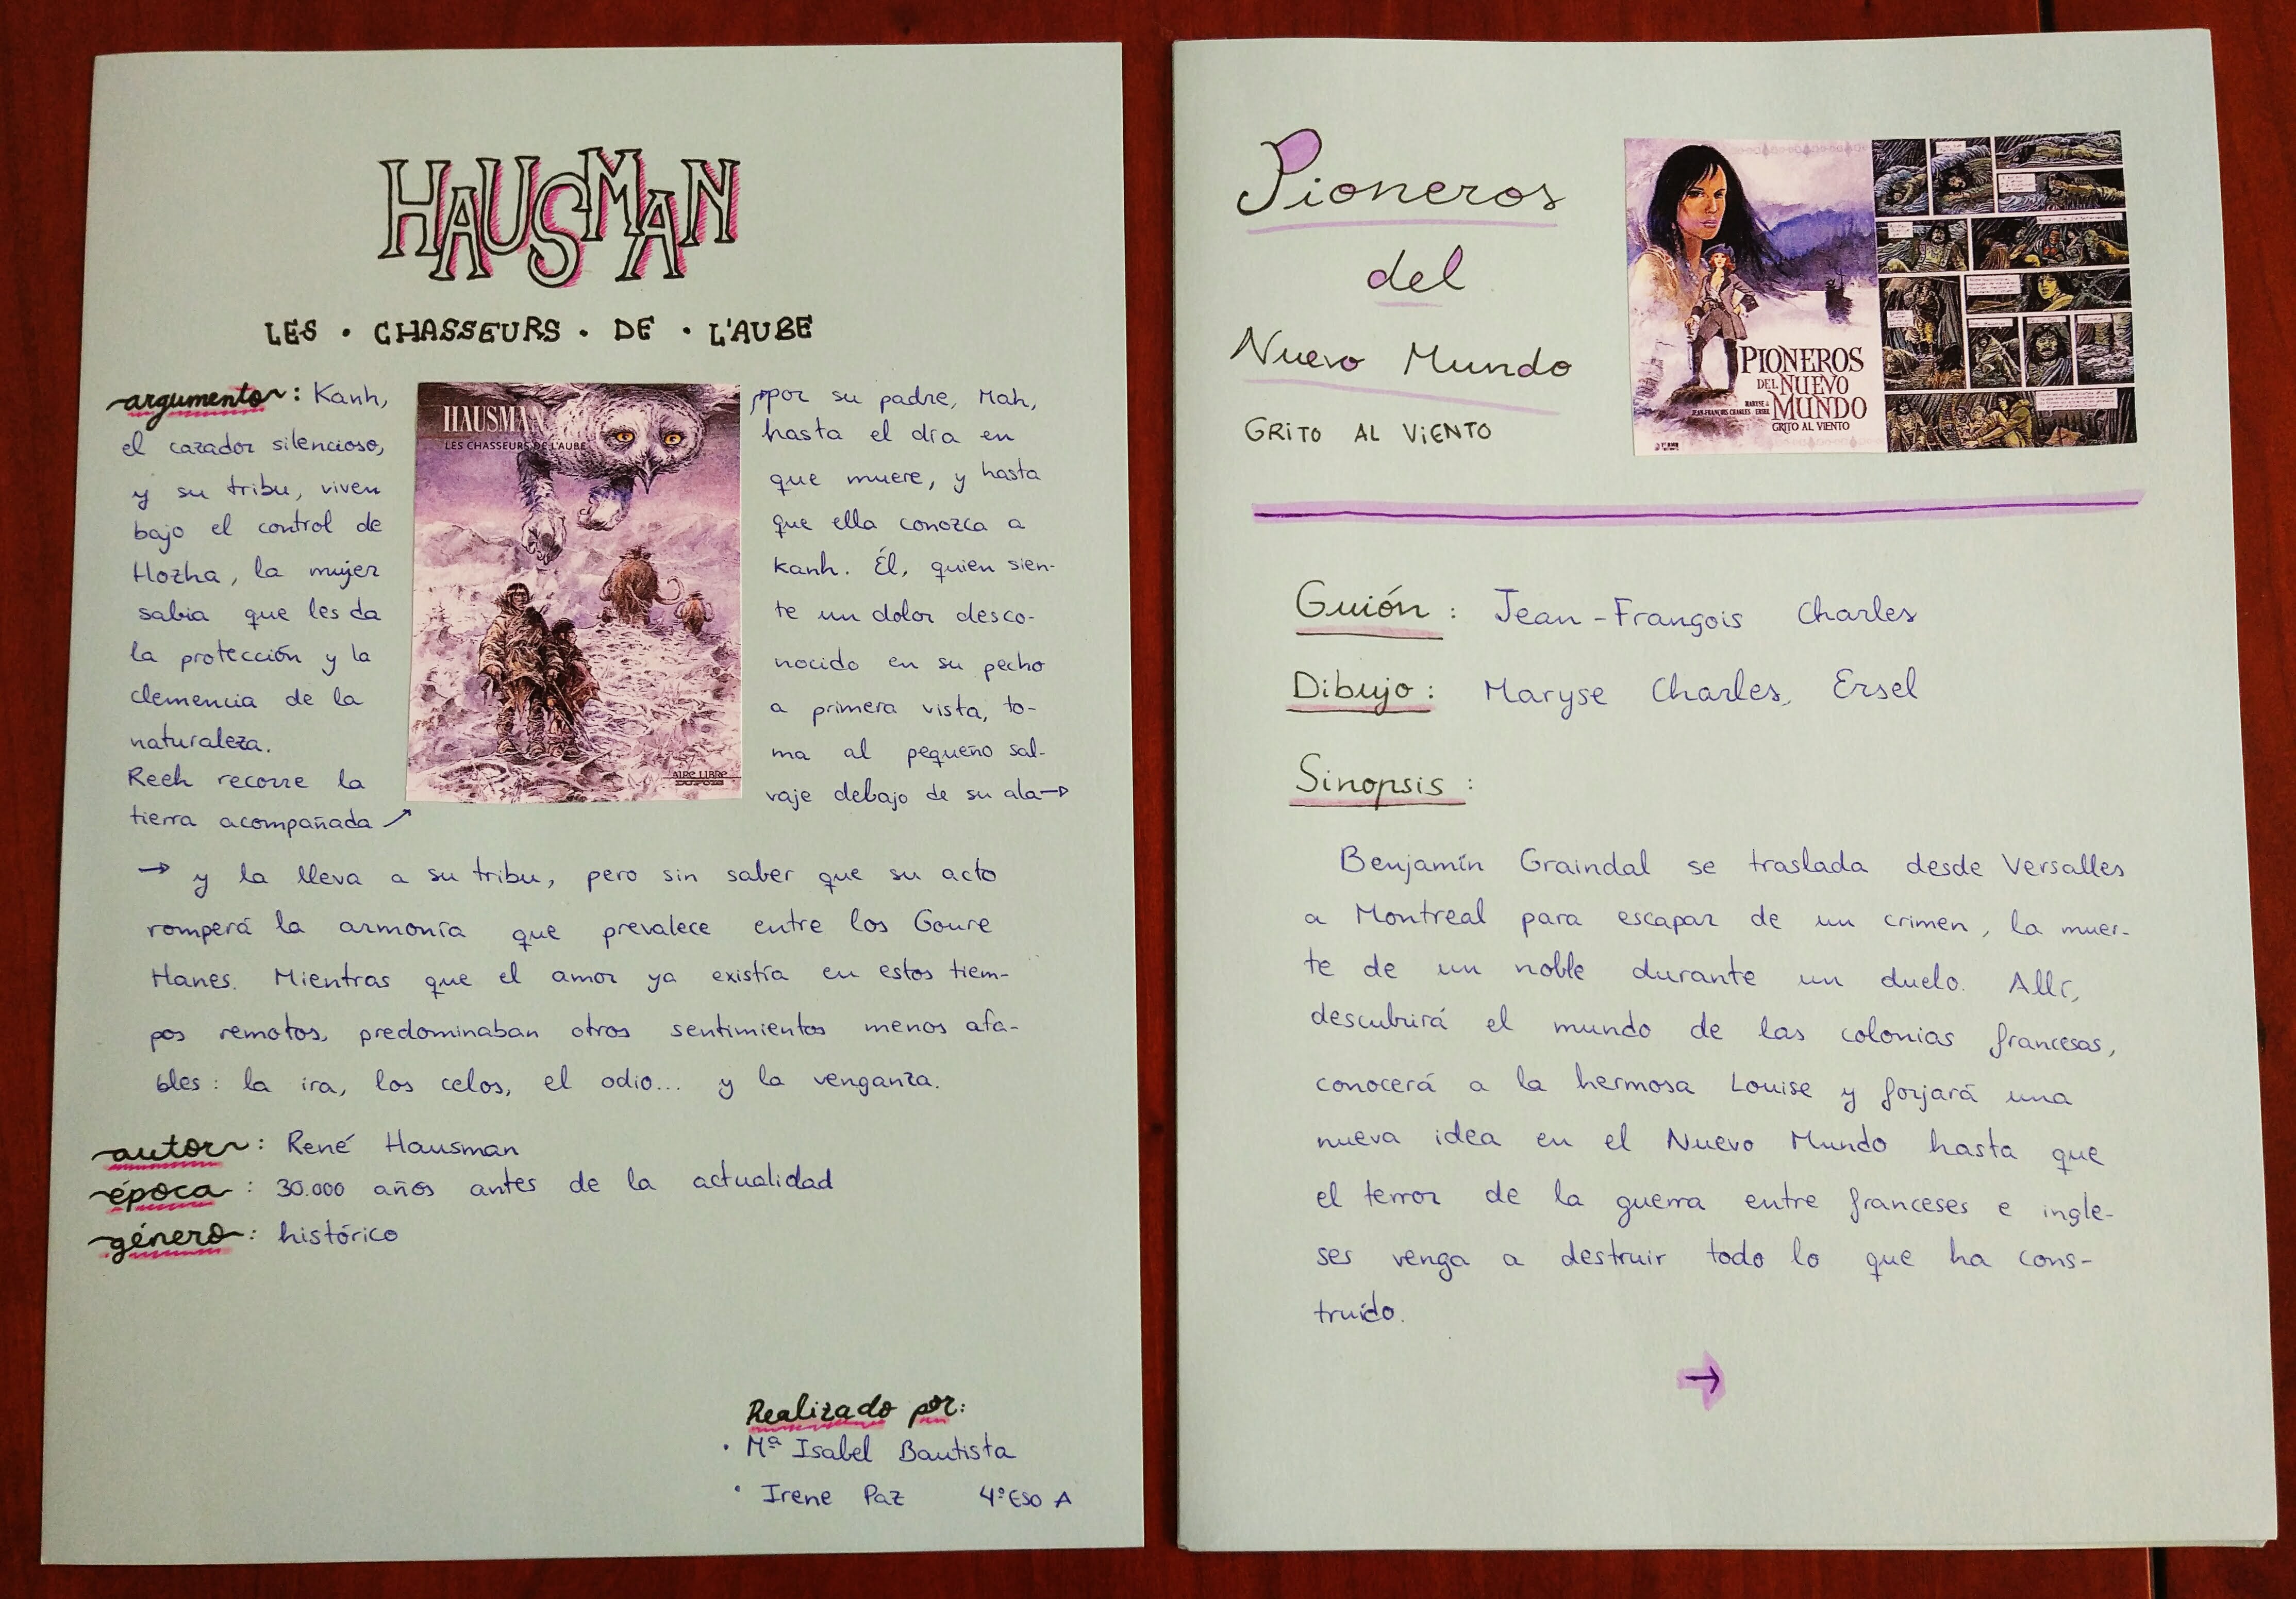 HAUSMAN
LES · CHASSEURS · DE · L'AUBE
argumento: Kanh,
el cazador silencioso,
y su tribu, viven
bajo el control de
Hozha, la mujer
sabia que les da
la protección y la
clemencia de la
naturaleza.
Reeh recorre la
tierra acompañada ↗
HAUSMAN
LES CHASSEURS DE L'AUBE
AIRE LIBRE
DUPUIS
por su padre, Mah,
hasta el día en
que muere, y hasta
que ella conozca a
Kanh. Él, quien sien-
te un dolor desco-
nocido en su pecho
a primera vista, to-
ma al pequeño sal-
vaje debajo de su ala→
→ y la lleva a su tribu, pero sin saber que su acto
romperá la armonía que prevalece entre los Goure
Hanes. Mientras que el amor ya existía en estos tiem-
pos remotos, predominaban otros sentimientos menos afa-
bles: la ira, los celos, el odio... y la venganza.
autor: René Hausman
época: 30.000 años antes de la actualidad
género: histórico
Realizado por:
· Mª Isabel Bautista
· Irene Paz 4º ESO A
Pioneros
del
Nuevo Mundo
GRITO AL VIENTO
PIONEROS
DEL NUEVO
MUNDO
MARYSE & JEAN-FRANÇOIS CHARLES ERSEL
GRITO AL VIENTO
Guión: Jean-François Charles
Dibujo: Maryse Charles, Ersel
Sinopsis:
Benjamín Graindal se traslada desde Versalles
a Montreal para escapar de un crimen, la muer-
te de un noble durante un duelo. Allí,
descubrirá el mundo de las colonias francesas,
conocerá a la hermosa Louise y forjará una
nueva idea en el Nuevo Mundo hasta que
el terror de la guerra entre franceses e ingle-
ses venga a destruir todo lo que ha cons-
truido.
→